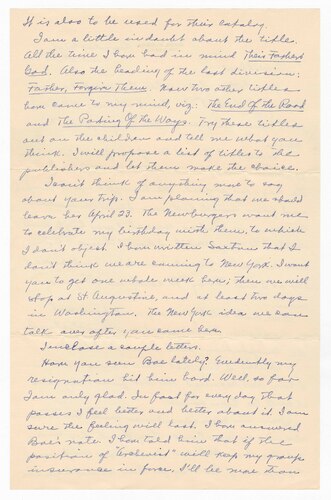 It is also to be used for their catalog.
I am a little in doubt about the title.
All the time I have had in mind Their Father's
God. Also the heading of the last division:
Father, Forgive Them. Now two other titles
have come to my mind, viz: The End of the Road
and The Parting Of the Ways. Try these titles
out on the children and tell me what you
think. I will propose a list of titles to the
publishers and let them make the choice.
I can't think of anything more to say
about your trip. I am planning that we should
leave here April 23. The Newburgers want me
to celebrate my birthday with them, to which
I don't object. I have written Saxtun that I
don't think we are coming to New York. I want
you to get one whole week here; then we will
stop at St Augustine, and at least two days
in Washington. The New York idea we can
talk over after you come here.
I enclose a couple letters.
Have you seen Boe lately? Evidently my
resignation hit him hard. Well, so far
I am only glad. In fact for every day that
passes I feel better and better about it. I am
sure the feeling will last. I have answered
Boe's note. I have told him that if the
position of "Archivist" will keep my group
insurance in force, I'll be more than